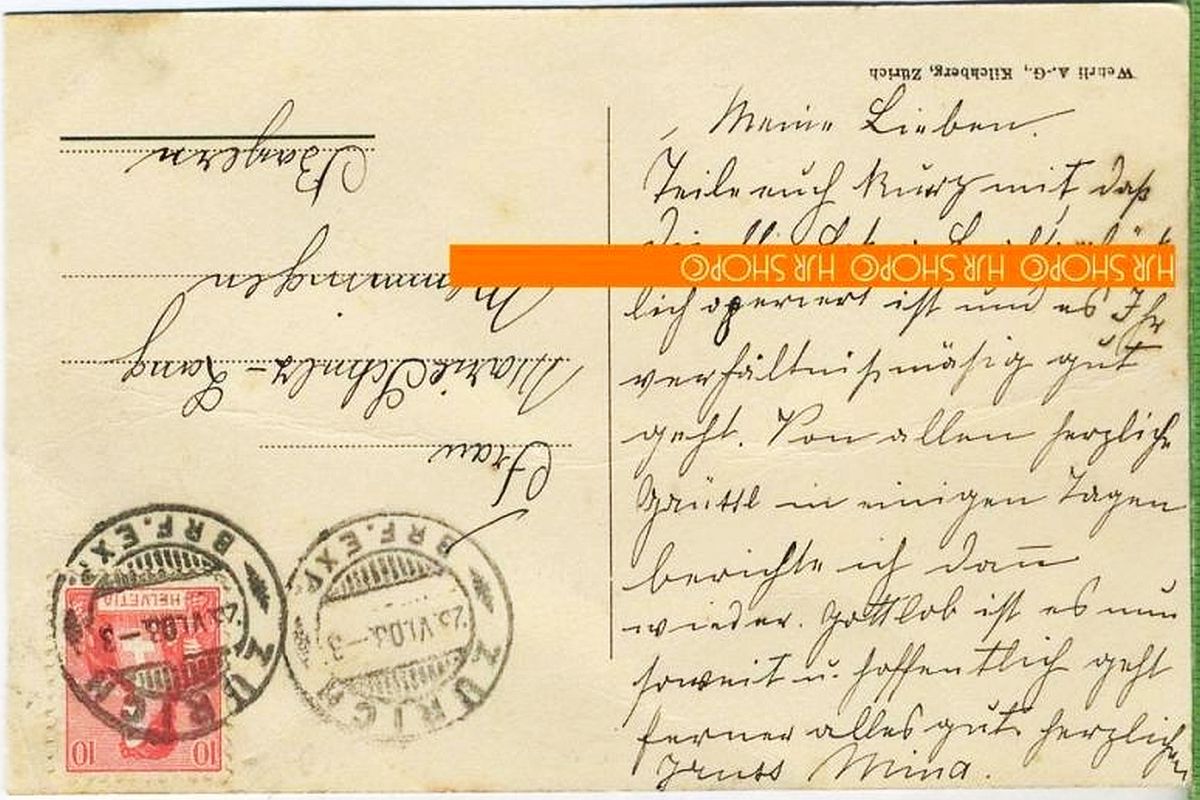 Wehrli A.-G., Kilchberg, Zürich
Meine Lieben.
Teile euch kurz mit, daß
HJR SHOP© HJR SHOP© HJR SHOP©
lich operiert ist und es Ihr
verhältnißmäsig gut
geht. Von allen herzliche
in einigen Tagen
berichte ich dann
wieder. Gottlob ist es nun
soweit u. hoffentlich geht
ferner alles gut. herzlichen
Gruss Mina.
Frau
Marie Schulz-Lang
Memmingen
Bayern
ZÜRICH
BRF. EXP.
23.VI.08.–3
ZÜRICH
BRF. EXP.
23.VI.08.–3
HELVETIA
10 10